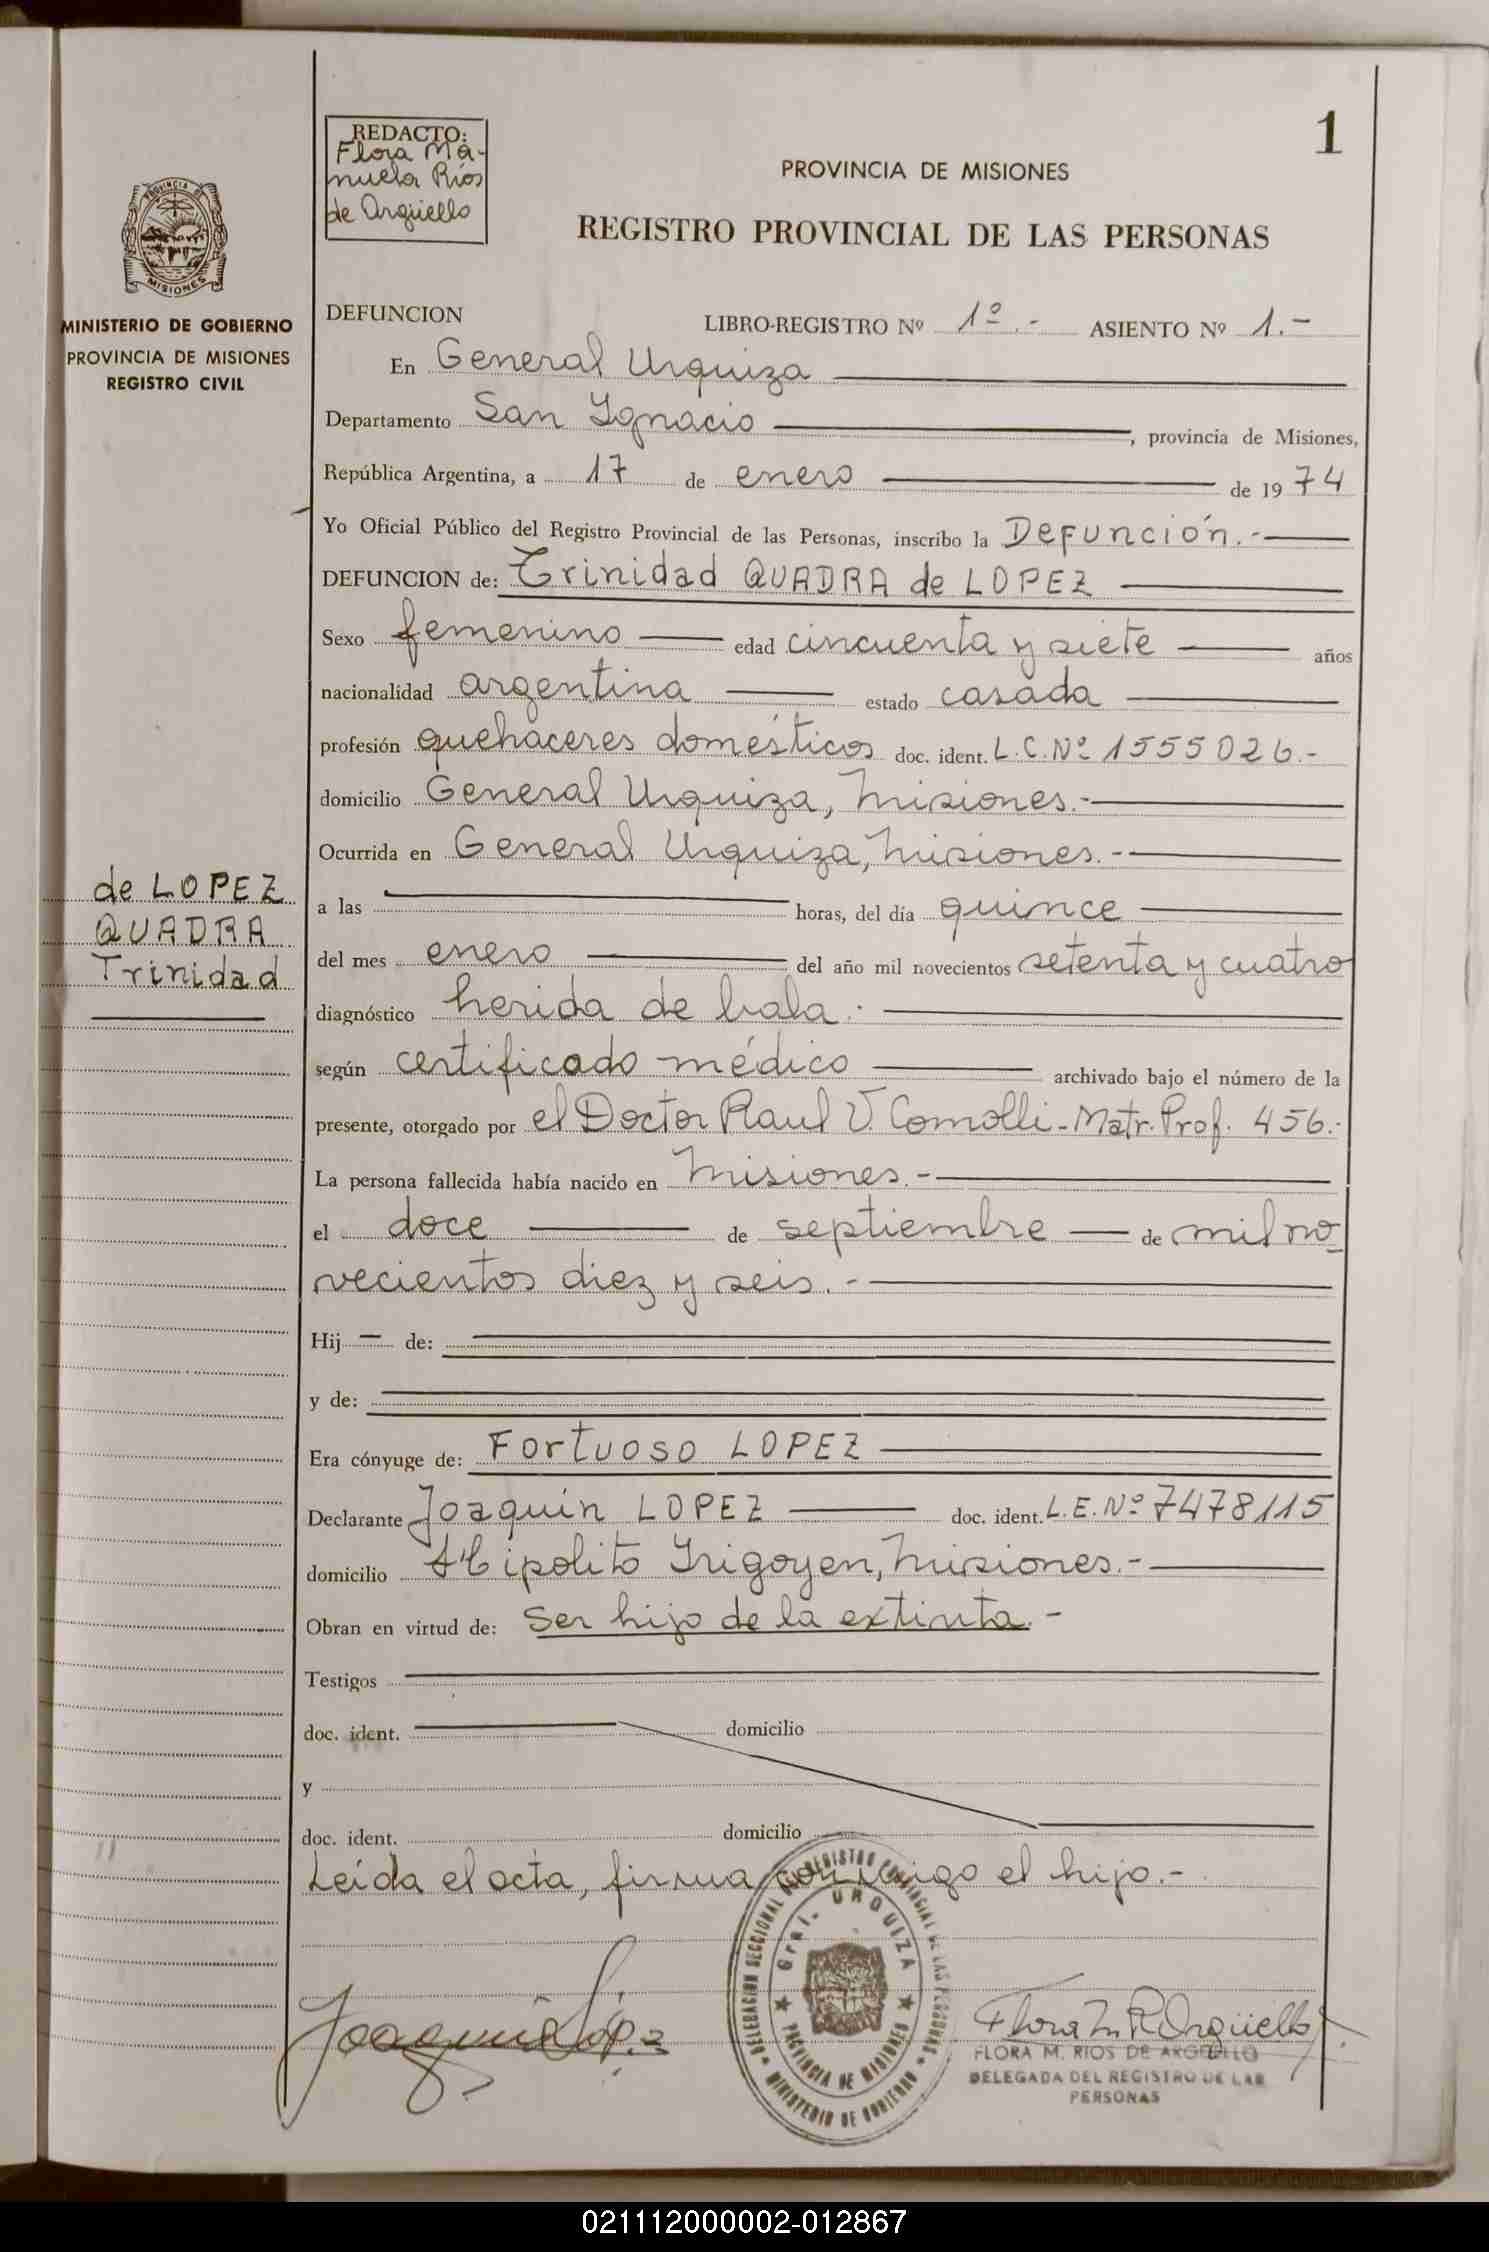 1
REDACTO:
Flora Ma-
nuela Ríos
de Argüello
PROVINCIA DE MISIONES
REGISTRO PROVINCIAL DE LAS PERSONAS
PROVINCIA DE
MISIONES
MINISTERIO DE GOBIERNO
PROVINCIA DE MISIONES
REGISTRO CIVIL
DEFUNCION
LIBRO-REGISTRO Nº 1º.- ASIENTO Nº 1.-
En General Urquiza
Departamento San Ignacio, provincia de Misiones,
República Argentina, a 17 de enero de 1974
Yo Oficial Público del Registro Provincial de las Personas, inscribo la Defunción.-
DEFUNCION de: Trinidad QUADRA de LOPEZ
Sexo femenino edad cincuenta y siete años
nacionalidad argentina estado casada
profesión quehaceres domésticos doc. ident. L.C.Nº 1555026.-
domicilio General Urquiza, Misiones.-
Ocurrida en General Urquiza, Misiones.-
a las horas, del día quince
del mes enero del año mil novecientos setenta y cuatro
diagnóstico herida de bala.
según certificado médico archivado bajo el número de la
presente, otorgado por el Doctor Raul V. Comolli-Matr. Prof. 456.-
La persona fallecida había nacido en Misiones.-
el doce de septiembre de mil no
vecientos diez y seis.-
Hij — de:
y de:
Era cónyuge de: Fortuoso LOPEZ
Declarante Joaquín LOPEZ doc. ident. L.E.Nº 7478115
domicilio Hipolito Irigoyen, Misiones.-
Obran en virtud de: Ser hijo de la extinta.-
Testigos
doc. ident. domicilio
y
doc. ident. domicilio
Leída el acta, firma conmigo el hijo.-
de LOPEZ
QUADRA
Trinidad
Joaquin Lopez
DELEGACION SECCIONAL DEL REGISTRO PROVINCIAL DE LAS PERSONAS
MINISTERIO DE GOBIERNO
Gral. URQUIZA
PROVINCIA DE MISIONES
Flora M. R. Argüello
FLORA M. RIOS DE ARGÜELLO
DELEGADA DEL REGISTRO DE LAS
PERSONAS
021112000002-012867